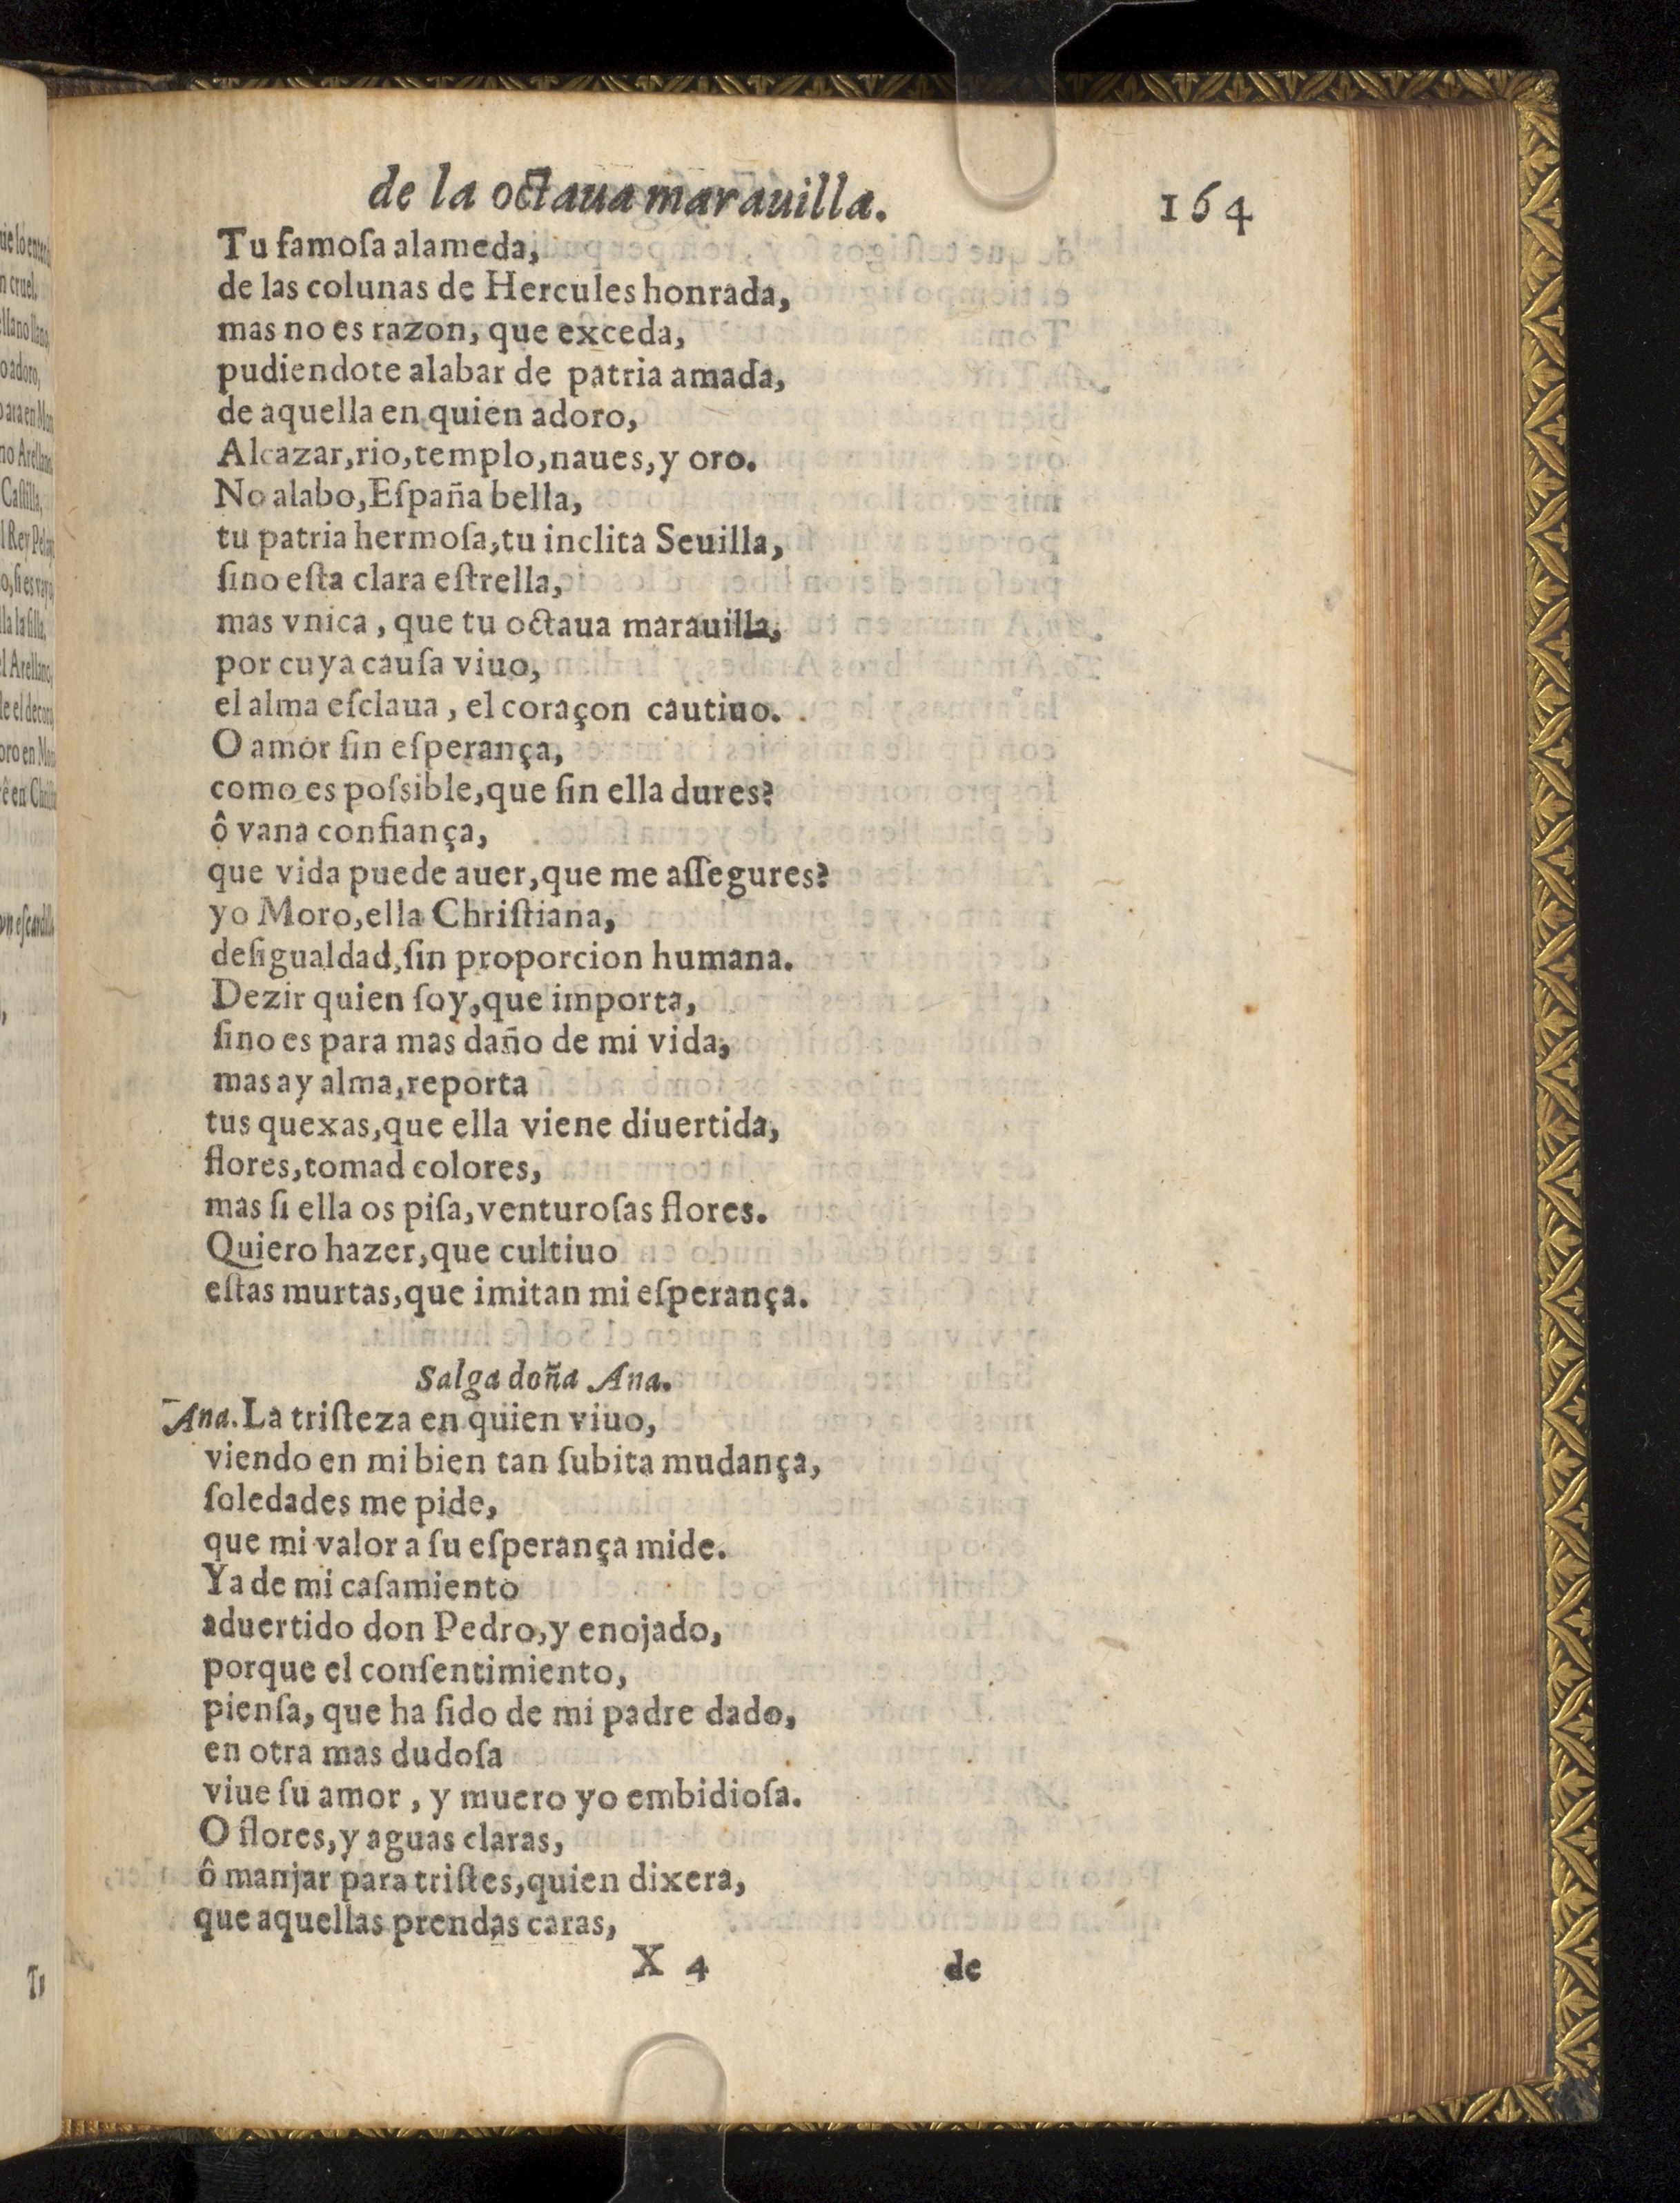 de la octaua marauilla. 164
Tu famoſa alameda,
de las colunas de Hercules honrada,
mas no es razon, que exceda,
pudiendote alabar de patria amada,
de aquella en quien adoro,
Alcazar, rio, templo, naues, y oro.
No alabo, Eſpaña bella,
tu patria hermoſa, tu inclita Seuilla,
ſino eſta clara eſtrella,
mas vnica, que tu octaua marauilla,
por cuya cauſa viuo,
el alma eſclaua, el coraçon cautiuo.
O amor ſin eſperança,
como es poſsible, que ſin ella dures?
ô vana confiança,
que vida puede auer, que me aſſegures?
yo Moro, ella Chriſtiana,
deſigualdad, ſin proporcion humana.
Dezir quien ſoy, que importa,
ſino es para mas daño de mi vida,
mas ay alma, reporta
tus quexas, que ella viene diuertida,
flores, tomad colores,
mas ſi ella os piſa, venturoſas flores.
Quiero hazer, que cultiuo
eſtas murtas, que imitan mi eſperança.
Salga doña Ana.
Ana. La triſteza en quien viuo,
viendo en mi bien tan ſubita mudança,
ſoledades me pide,
que mi valor a ſu eſperança mide.
Ya de mi caſamiento
aduertido don Pedro, y enojado,
porque el conſentimiento,
pienſa, que ha ſido de mi padre dado,
en otra mas dudoſa
viue ſu amor, y muero yo embidioſa.
O flores, y aguas claras,
ô manjar para triſtes, quien dixera,
que aquellas prendas caras,
X 4 de